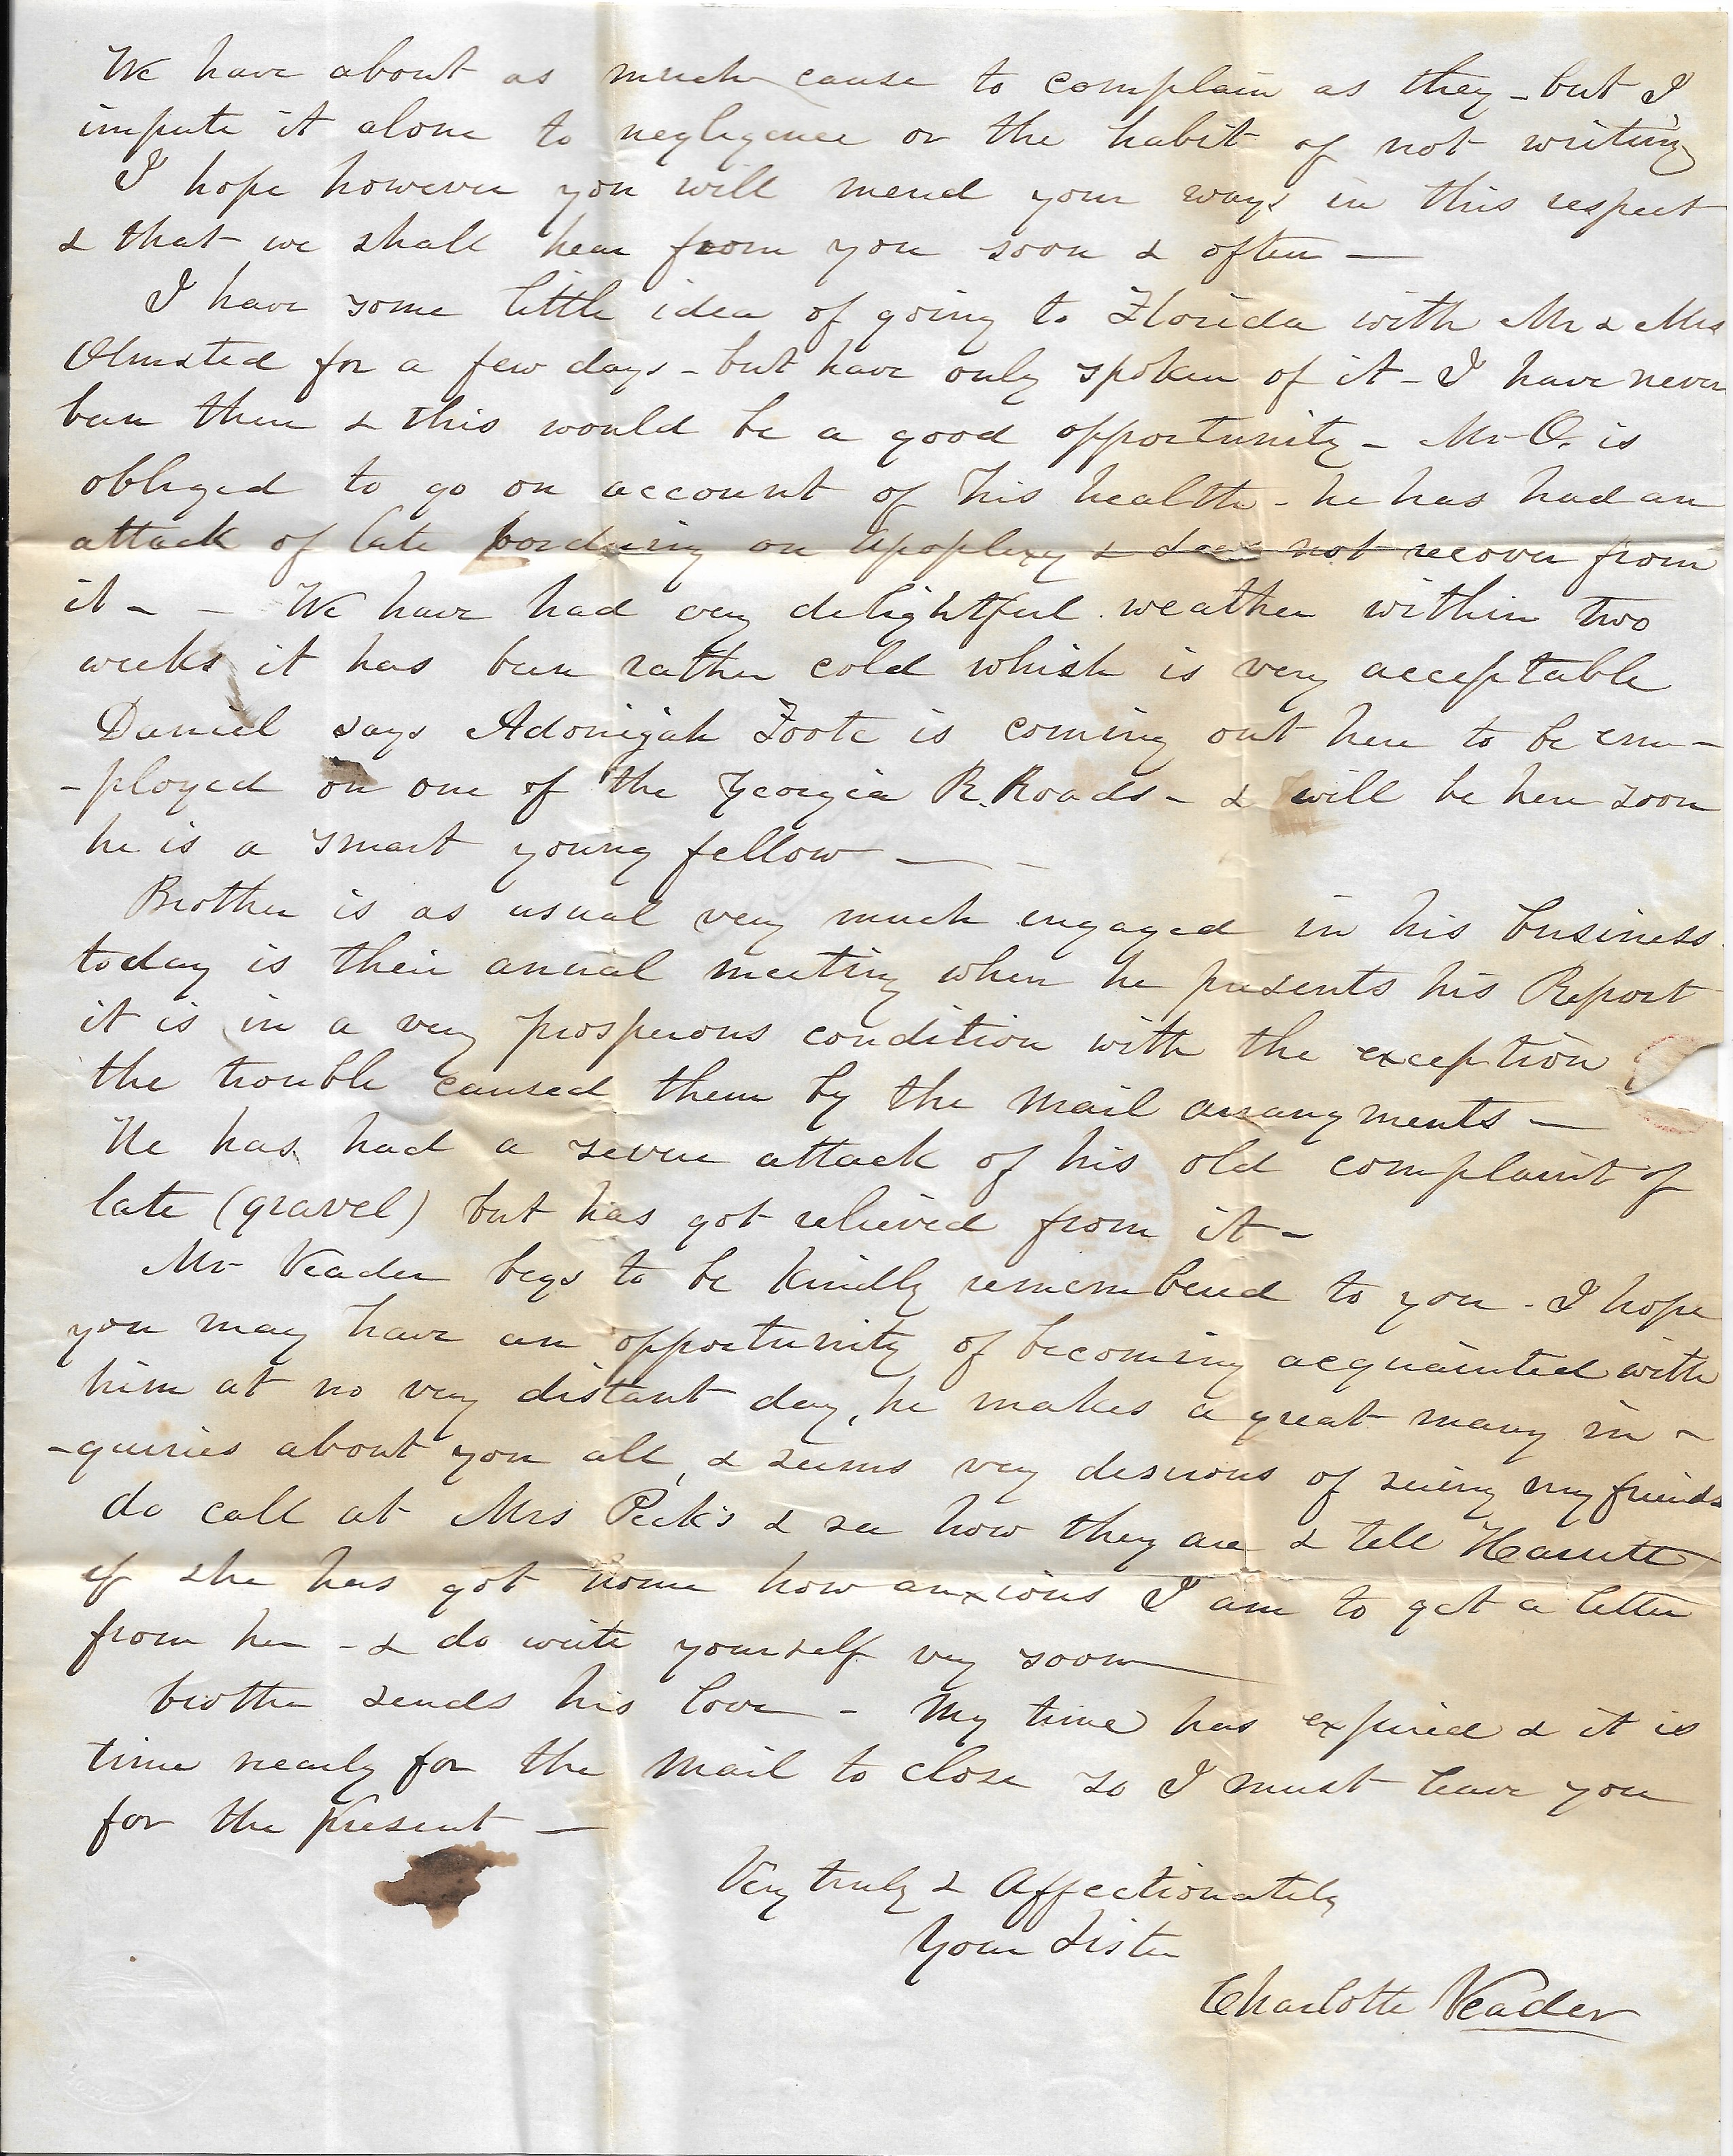 We have about as much cause to complain as they - but I
impute it alone to negligence or the habit of not writing
I hope however you will mend your ways in this respect
& that we shall hear from you soon & often —
I have some little idea of going to Florida with Mr & Mrs
Olmsted for a few days - but have only spoken of it - I have never
been there & this would be a good opportunity - Mr O. is
obliged to go on account of his health - he has had an
attack of late bordering on Apoplexy & does not recover from
it - - We have had very delightful weather within two
weeks it has been rather cold which is very acceptable
Daniel says Adonijah Foote is coming out here to be em-
-ployed on one of the Georgia R. Roads - & will be here soon
he is a smart young fellow —
Brother is as usual very much engaged in his business
today is their anual meeting when he presents his Report
it is in a very prosperous condition with the exception
the trouble caused them by the mail arrangments —
He has had a severe attack of his old complaint of
late (gravel) but has got relieved from it -
Mr Veader begs to be kindly remembered to you - I hope
you may have an opportunity of becoming acquainted with
him at no very distant day, he makes a great many in -
-quiries about you all, & seems very desirous of seeing my friends
do call at Mrs Peck's & see how they are & tell Harriett
if she has got home how anxious I am to get a letter
from her - & do write yourself very soon —
brother sends his love - My time has expired & it is
time nearly for the mail to close so I must leave you
for the present —
Very truly & Affectionately
Your Sister
Charlotte Veader